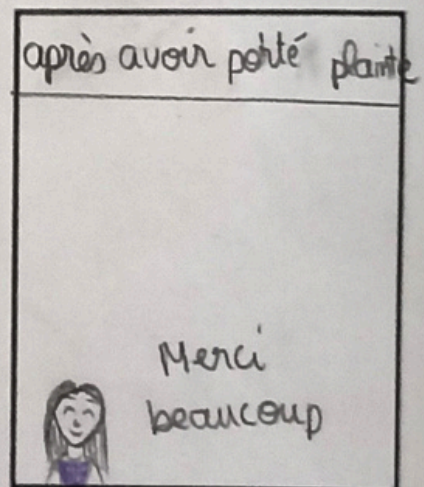 après avoir porté plainte
Merci
beaucoup